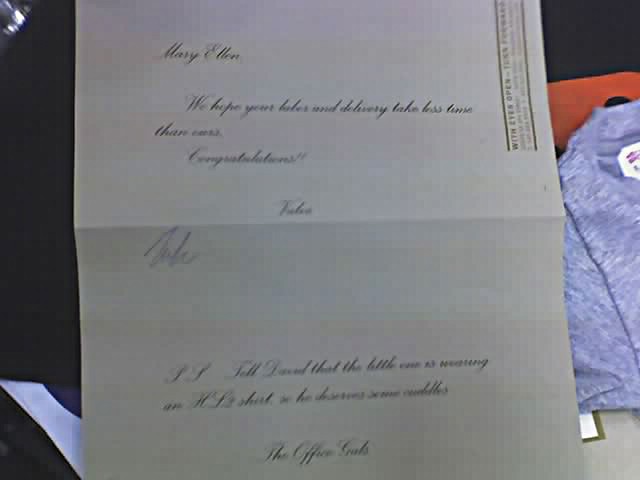 Mary Ellen,
We hope your labor and delivery take less time
than ours.
Congratulations!!
Valve
P.S. Tell David that the little one is wearing
an HL2 shirt, so he deserves some cuddles
The Office Gals
WITH EYES OPEN